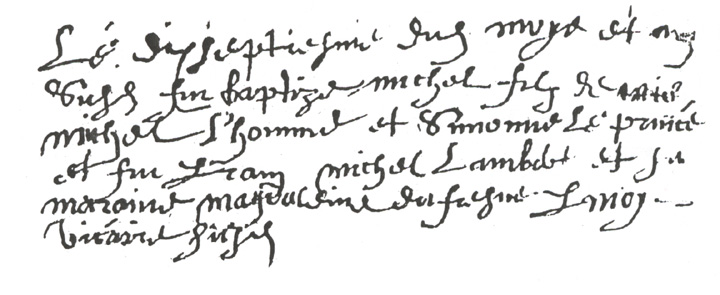 Le dixseptiesme dud moys et an
Susd fut baptize michel filz de
michel L'homme et Simonne Le prince
et fut Parain michel Lambert et sa
maraine magdaleine dufresne P moy
vicaire susd